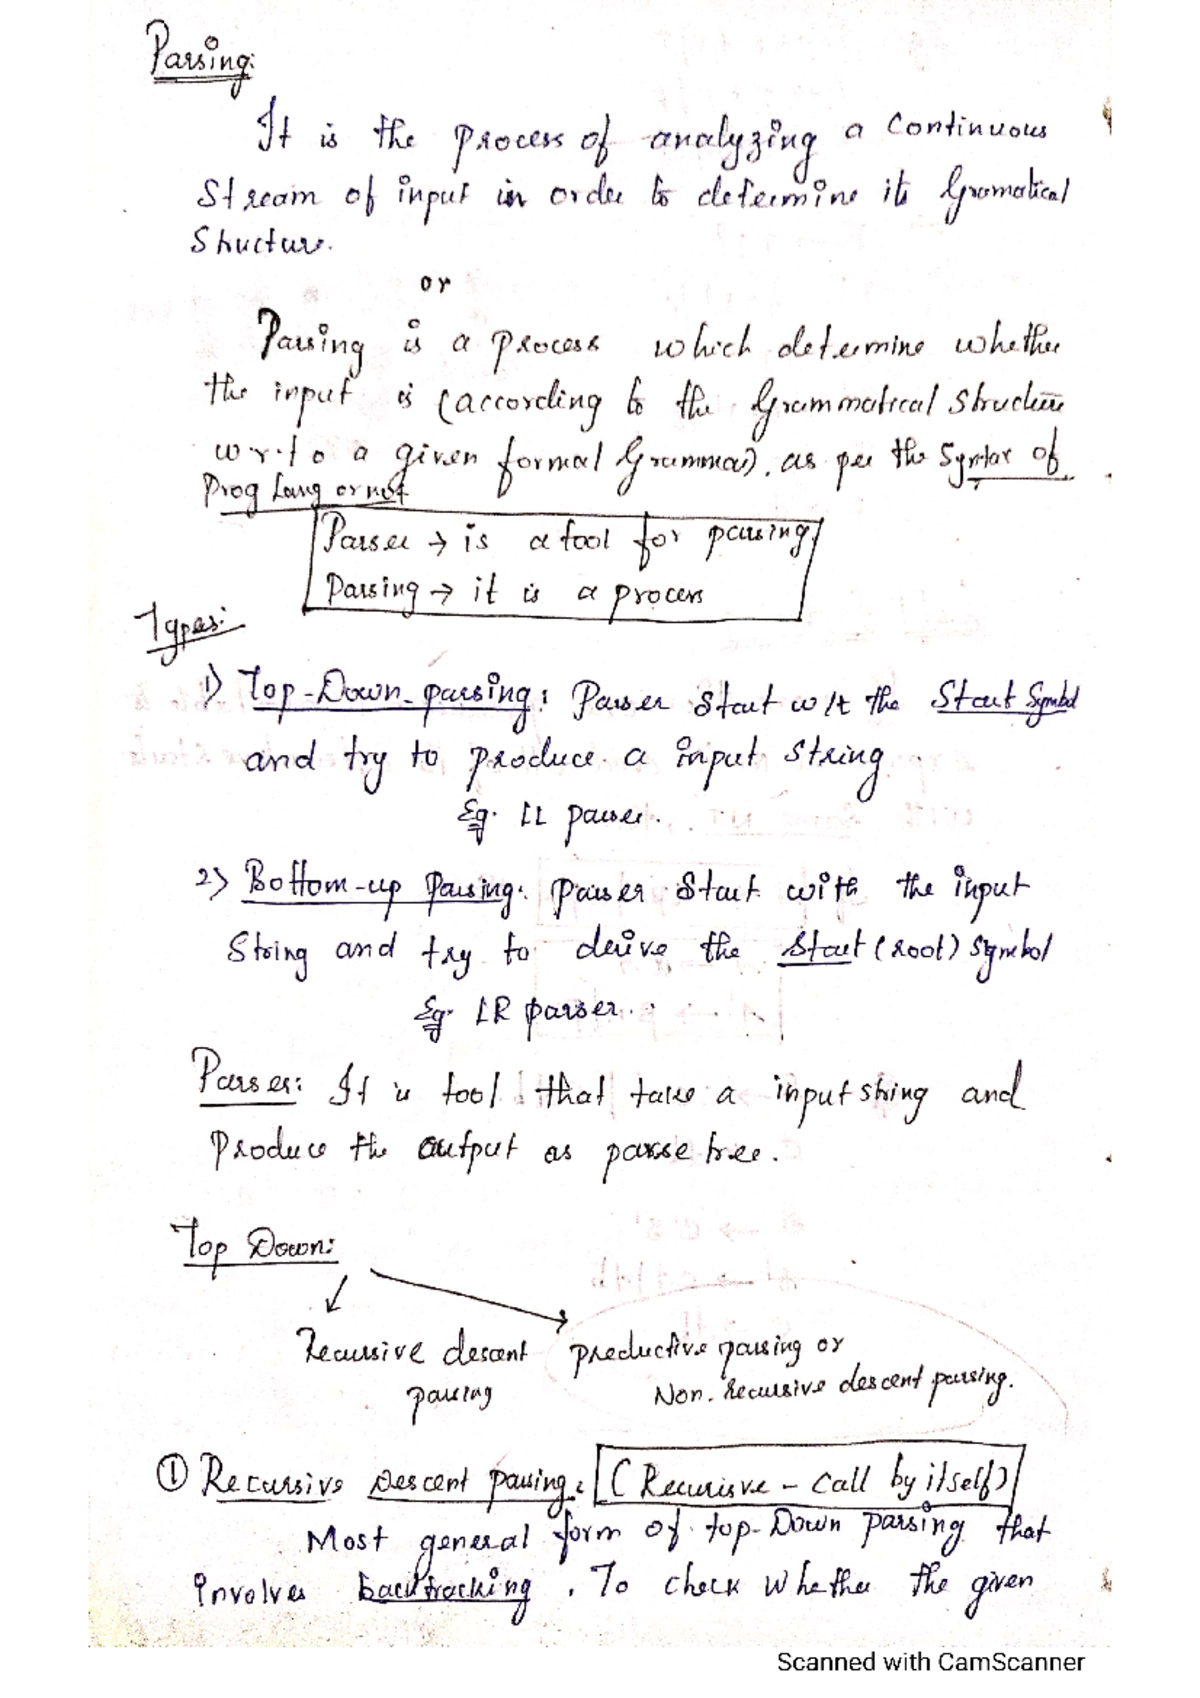 Parsing:
It is the process of analyzing a continuous
Stream of input in order to determine its Gramatical
Structure.
or
Parsing is a process which determine whether
the input is (according to the Grammatical Structure
w.r.to a given formal Grammar). as per the Syntax of
Prog Lang or not
Parser → is a tool for parsing
Parsing → it is a process
Types:
1) Top-Down-parsing: Parser Start with the Start Symbol
and try to produce a input string
Eg. LL parser.
2) Bottom-up Parsing: parser Start with the input
String and try to derive the Start (root) Symbol
Eg. LR parser..
Parser: It is tool that take a input string and
Produce the output as parse tree.
Top Down:
Recursive descent preductive parsing or
parsing Non. Recursive descent parsing.
① Recursive Descent parsing: (Recurisve - call by itself)
Most general form of top-Down parsing that
involves backtracking. To check whether the given
Scanned with CamScanner